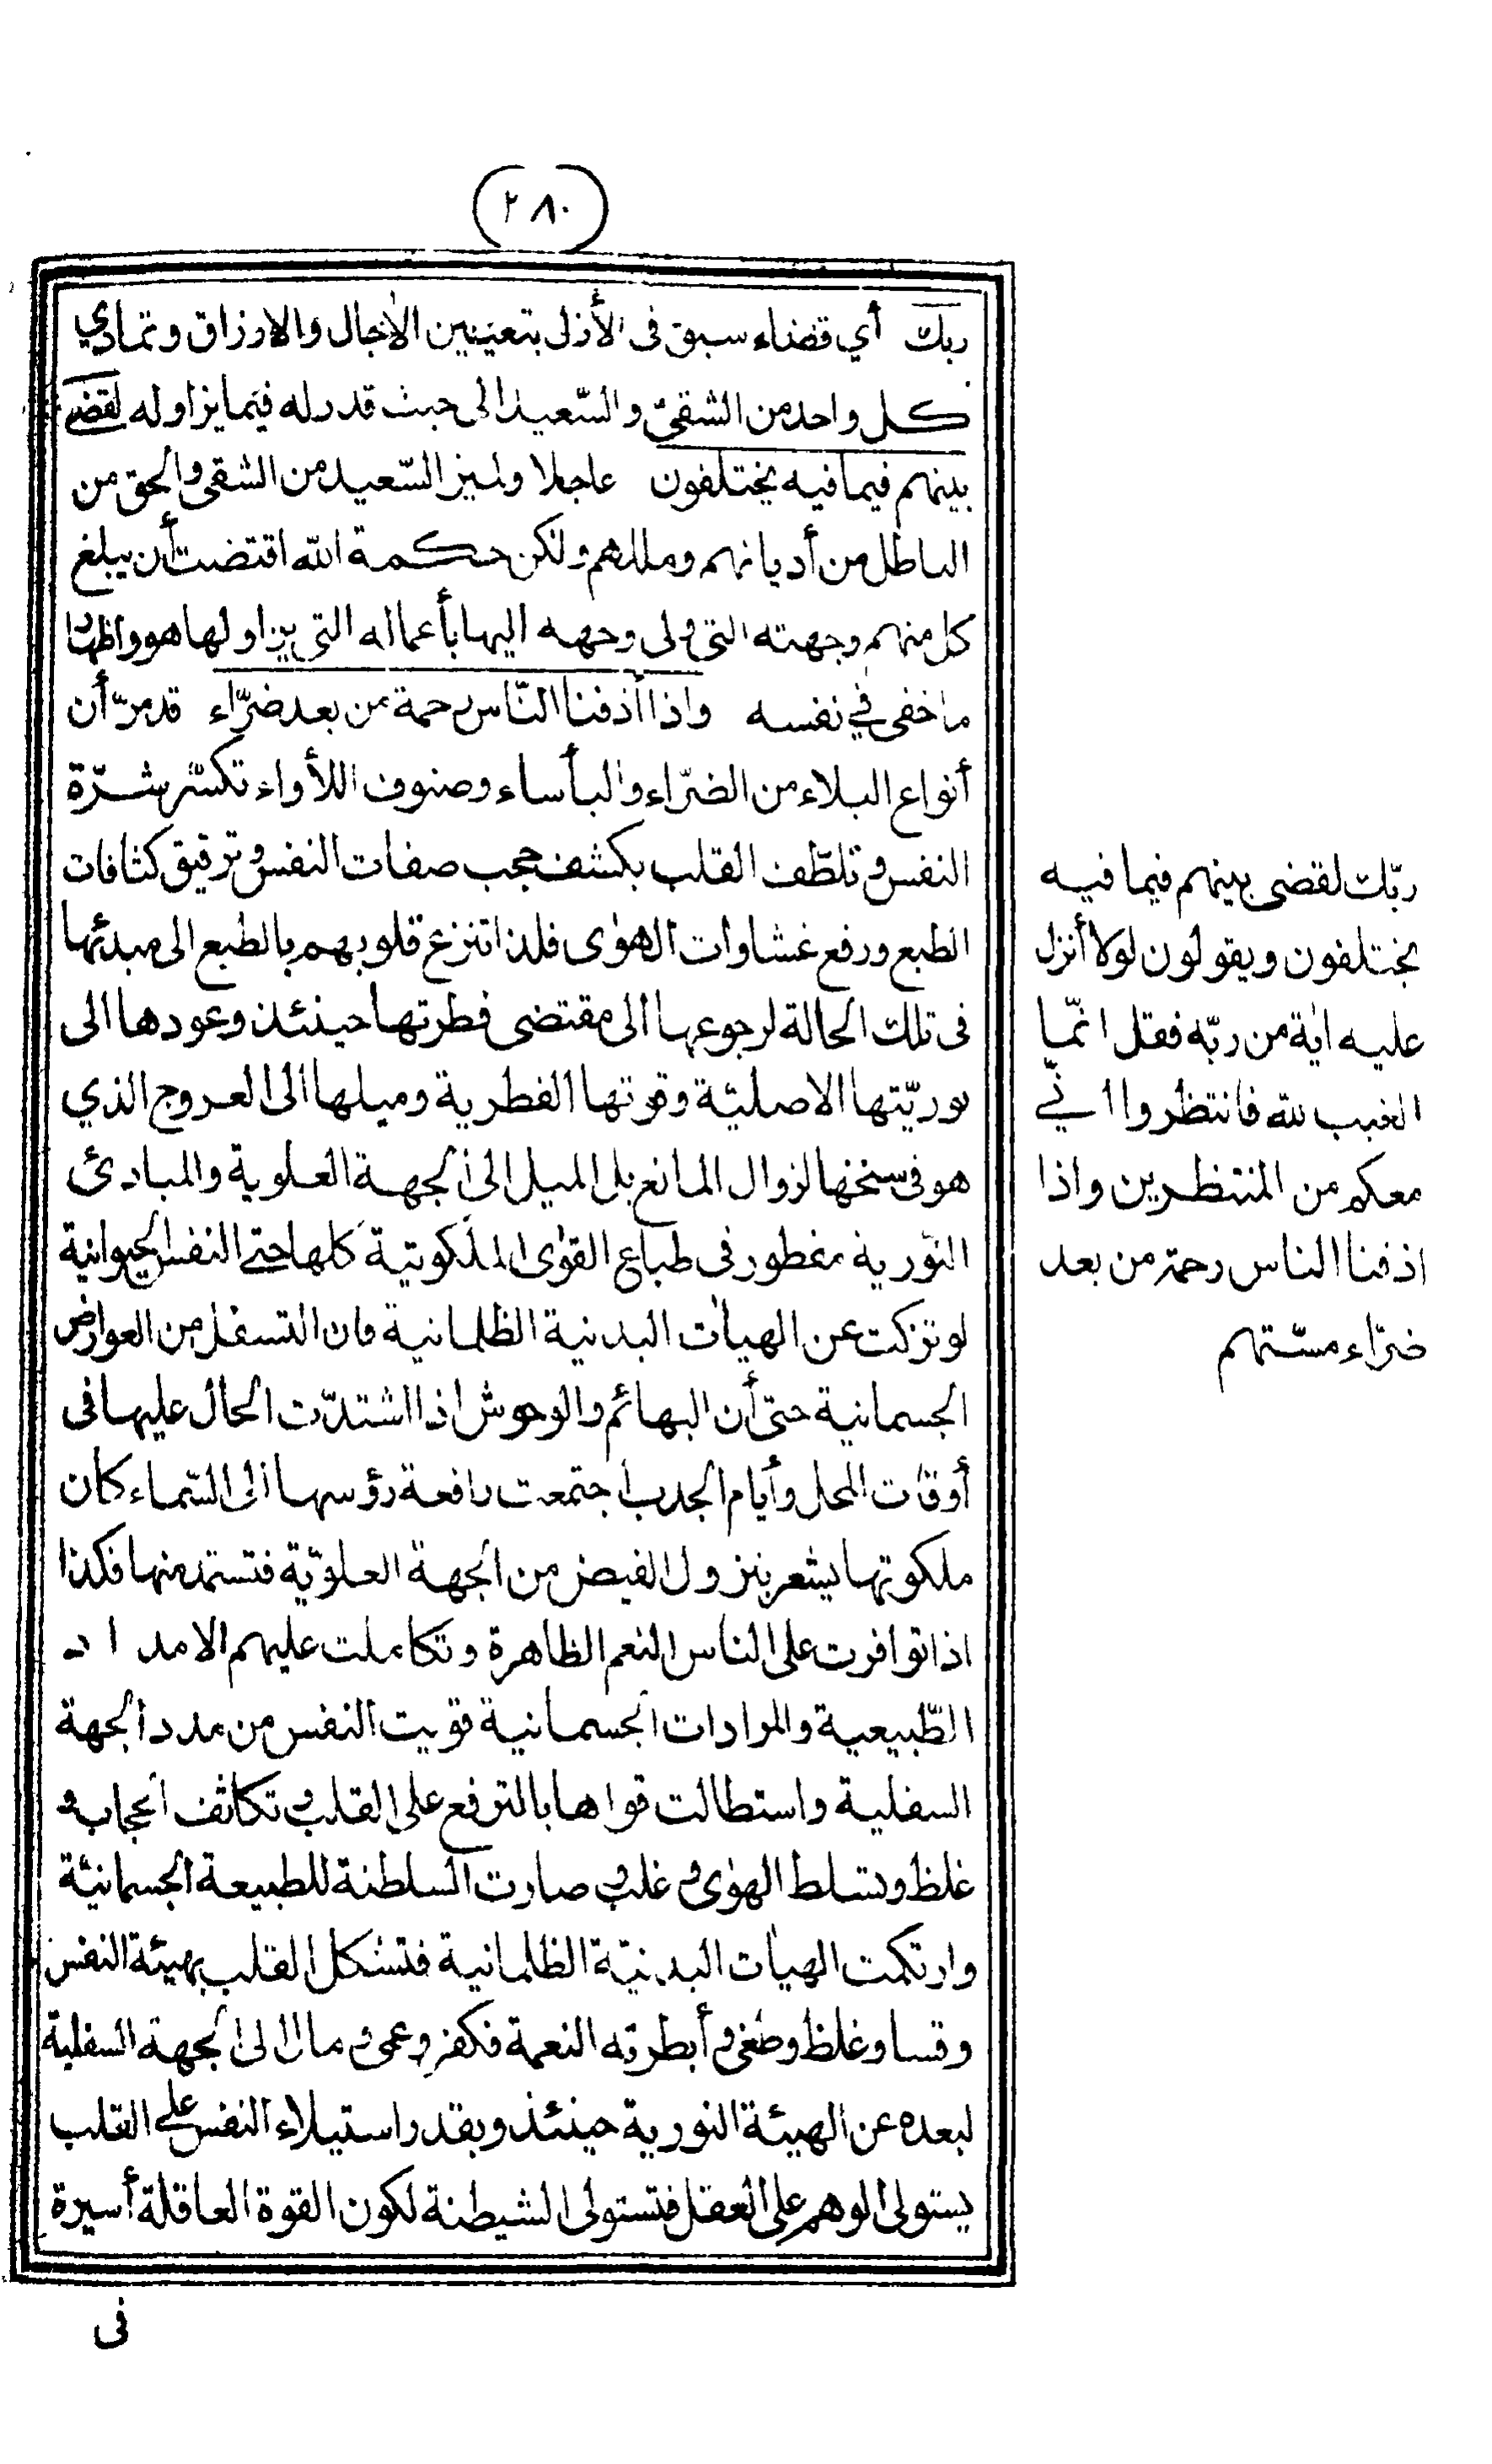 (٢٨٠)
ربك أي قضاء سبق فى الأزل بتعيين الاٰجال والارزاق وتمادي
كل واحد من الشقيّ والسّعيد الى حيث قدر له فيما يزاوله لقضى
بينهم فيما فيه يختلفون عاجلا ولميز السّعيد من الشقى والحق من
الباطل من أديانهم ومللهم ولكن حكمة الله اقتضت أن يبلغ
كل منهم وجهته التى ولى وجهه اليها بأعماله التى يزاولها هو واظهار
ما خفى في نفسه واذا أذقنا النّاس رحمة من بعد ضرّاء قد مرّ أن
أنواع البلاء من الضرّاء والبأساء وصنوف اللأواء تكسّر شرّة
النفس وتلطّف القلب بكشف حجب صفات النفس وترقيق كثافات
الطبع ورفع غشاوات الهوٰى فلذا تنزع قلوبهم بالطبع الى مبدئها
فى تلك الحالة لرجوعها الى مقتضى فطرتها حينئذ وعودها الى
نوريّتها الاصليّة وقوتها الفطرية وميلها الى العروج الذي
هو فى سنخها لزوال المانع بل الميل الى الجهة العلوية والمبادئ
النّورية مفطور فى طباع القوٰى الملكوتية كلها حتى النفس الحيوانية
لو تزكت عن الهياٰت البدنية الظلمانية فان التسفل من العوارض
الجسمانية حتى أن البهائم والوحوش اذا اشتدّت الحال عليها فى
أوقات المحل وأيام الجدب اجتمعت رافعة رؤسها الى السّماء كان
ملكوتها يشعر بنزول الفيض من الجهة العلويّة فتستمد منها فكذا
اذا توافرت على الناس النعم الظاهرة وتكاملت عليهم الامداد
الطّبيعية والمرادات الجسمانية قويت النفس من مدد الجهة
السفلية واستطالت قواها بالترفع على القلب وتكاثف الحجاب و
غلظ وتسلط الهوٰى و غلب و صارت السلطنة للطبيعة الجسمانيّة
وارتكمت الهياٰت البدنيّة الظلمانية فتشكل القلب بهيئة النفس
وقسا وغلظ وطغى و أبطرته النعمة فكفر وعمى و مال الى الجهة السفلية
لبعده عن الهيئة النورية حينئذ وبقدر استيلاء النفس على القلب
يستولى الوهم على العقل فتستولى الشيطنة لكون القوة العاقلة أسيرة
فى
ربّك لقضى بينهم فيما فيه
يختلفون ويقولون لولا أنزل
عليه اٰية من ربّه فقل انّما
الغيب لله فانتظروا انّي
معكم من المنتظرين واذا
اذقنا الناس رحمة من بعد
ضرّاء مسّتهم